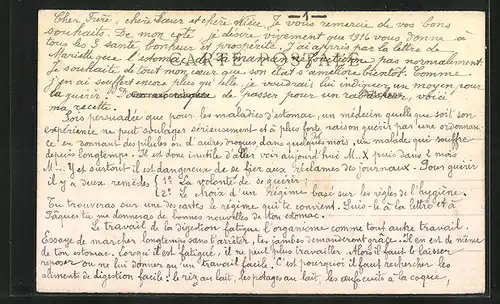 — 1 —
Cher Frère, chère Soeur et chère Nièce, Je vous remercie de vos bons
souhaits. De mon côté, je désire vivement que 1914 vous donne à
tous les 3 santé, bonheur et prospérité. J'ai appris par la lettre de
Mariette que l'estomac de maman ne fonctionne pas normalement.
Je souhaite de tout mon coeur que son état s'améliore bientôt. Comme
j'en ai souffert encore plus qu'elle, je voudrais lui indiquer un moyen pour
la guérir. de passer pour un rabâcheur, voici
ma recette.
Sois persuadée que pour les maladies d'estomac, un médecin quelle que soit son
expérience ne peut soulager sérieusement et à plus forte raison guérir par une ordonnan-
ce en donnant des pilules ou d'autres drogues dans quelques mois, un malade qui souffre
depuis longtemps. Il est donc inutile d'aller voir aujourd'hui M... X puis dans 2 mois
M... Y et surtout il est dangereux de se fier aux réclames des journaux. Pour guérir
il y a deux remèdes { 1° La volonté de se guérir ;
2° Le choix d'un régime basé sur les règles de l'hygiène.
Tu trouveras sur une des cartes le régime qui te convient. Suis-le à la lettre et à
Pâques tu me donneras de bonnes nouvelles de ton estomac.
Le travail de la digestion fatigue l'organisme comme tout autre travail.
Essaye de marcher longtemps sans t'arrêter, tes jambes demanderont grâce. Il en est de même
de ton estomac. Lorsqu'il est fatigué, il ne peut plus travailler. Alors il faut le laisser
reposer ou ne lui donner qu'un travail facile. C'est pourquoi il faut rechercher les
aliments de digestion facile : le riz au lait, les potages au lait, les oeufs cuits à la coque